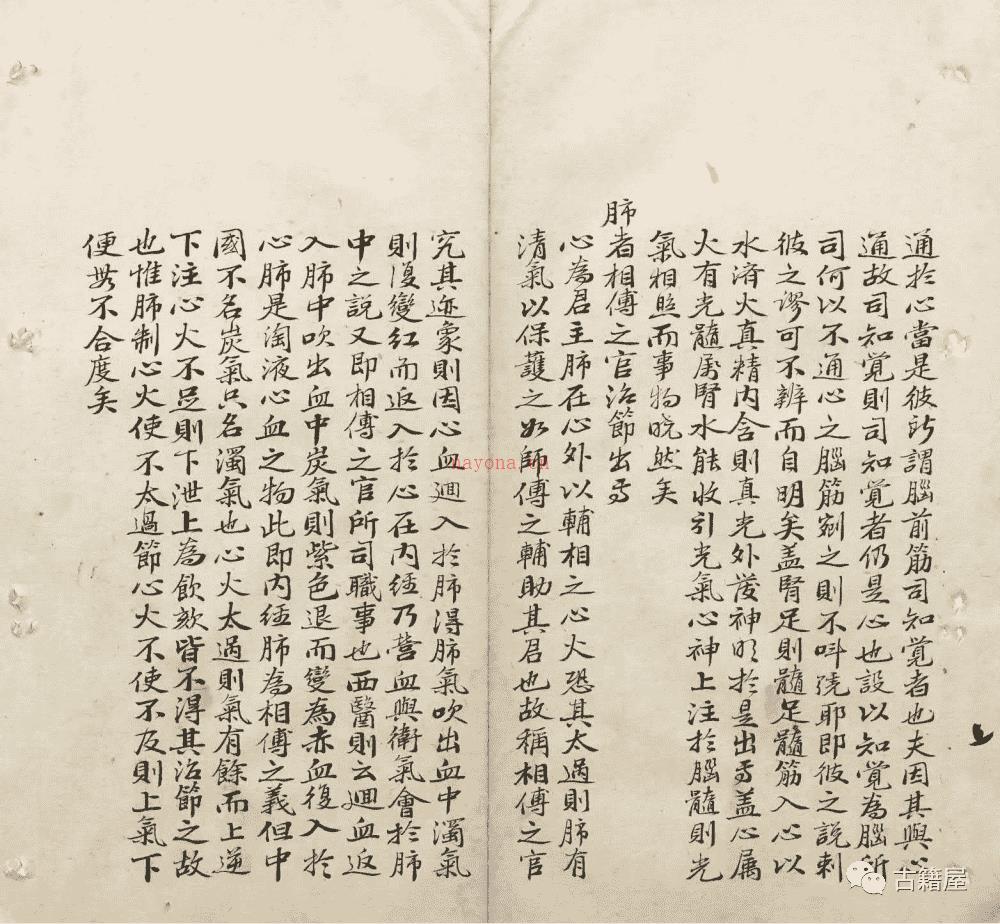 通於心當是彼所謂腦前筋司知覺者也夫因其與心
通故司知覺則司知覺者仍是心也設以知覺為腦所
司何以不通心之腦筋剜之則不呌繞耶即彼之說刺
彼之謬可不辨而自明矣盖腎足則髓足髓筋入心以
水濟火真精內含則真光外發神明於是出焉盖心属
火有光髓屬腎水能收引光氣心神上注於腦髓則光
氣相照而事物晓然矣
肺者相傅之官治節出焉
心為君主肺在心外以輔相之心火恐其太過則肺有
清氣以保護之如師傅之輔助其君也故稱相傅之官
究其迹象則因心血迴入於肺得肺氣吹出血中濁氣
則復變紅而返入於心在內経乃營血與衛氣會於肺
中之說又即相傅之官所司職事也西醫則云迴血返
入肺中吹出血中炭氣則紫色退而變為赤血復入於
心肺是淘液心血之物此即內経肺為相傅之義但中
國不名炭氣只名濁氣也心火太過則氣有餘而上逆
下注心火不足則下泄上為飲欬皆不得其治節之故
也惟肺制心火使不太過節心火不使不及則上氣下
便毋不合度矣
hayona.cn
古籍屋